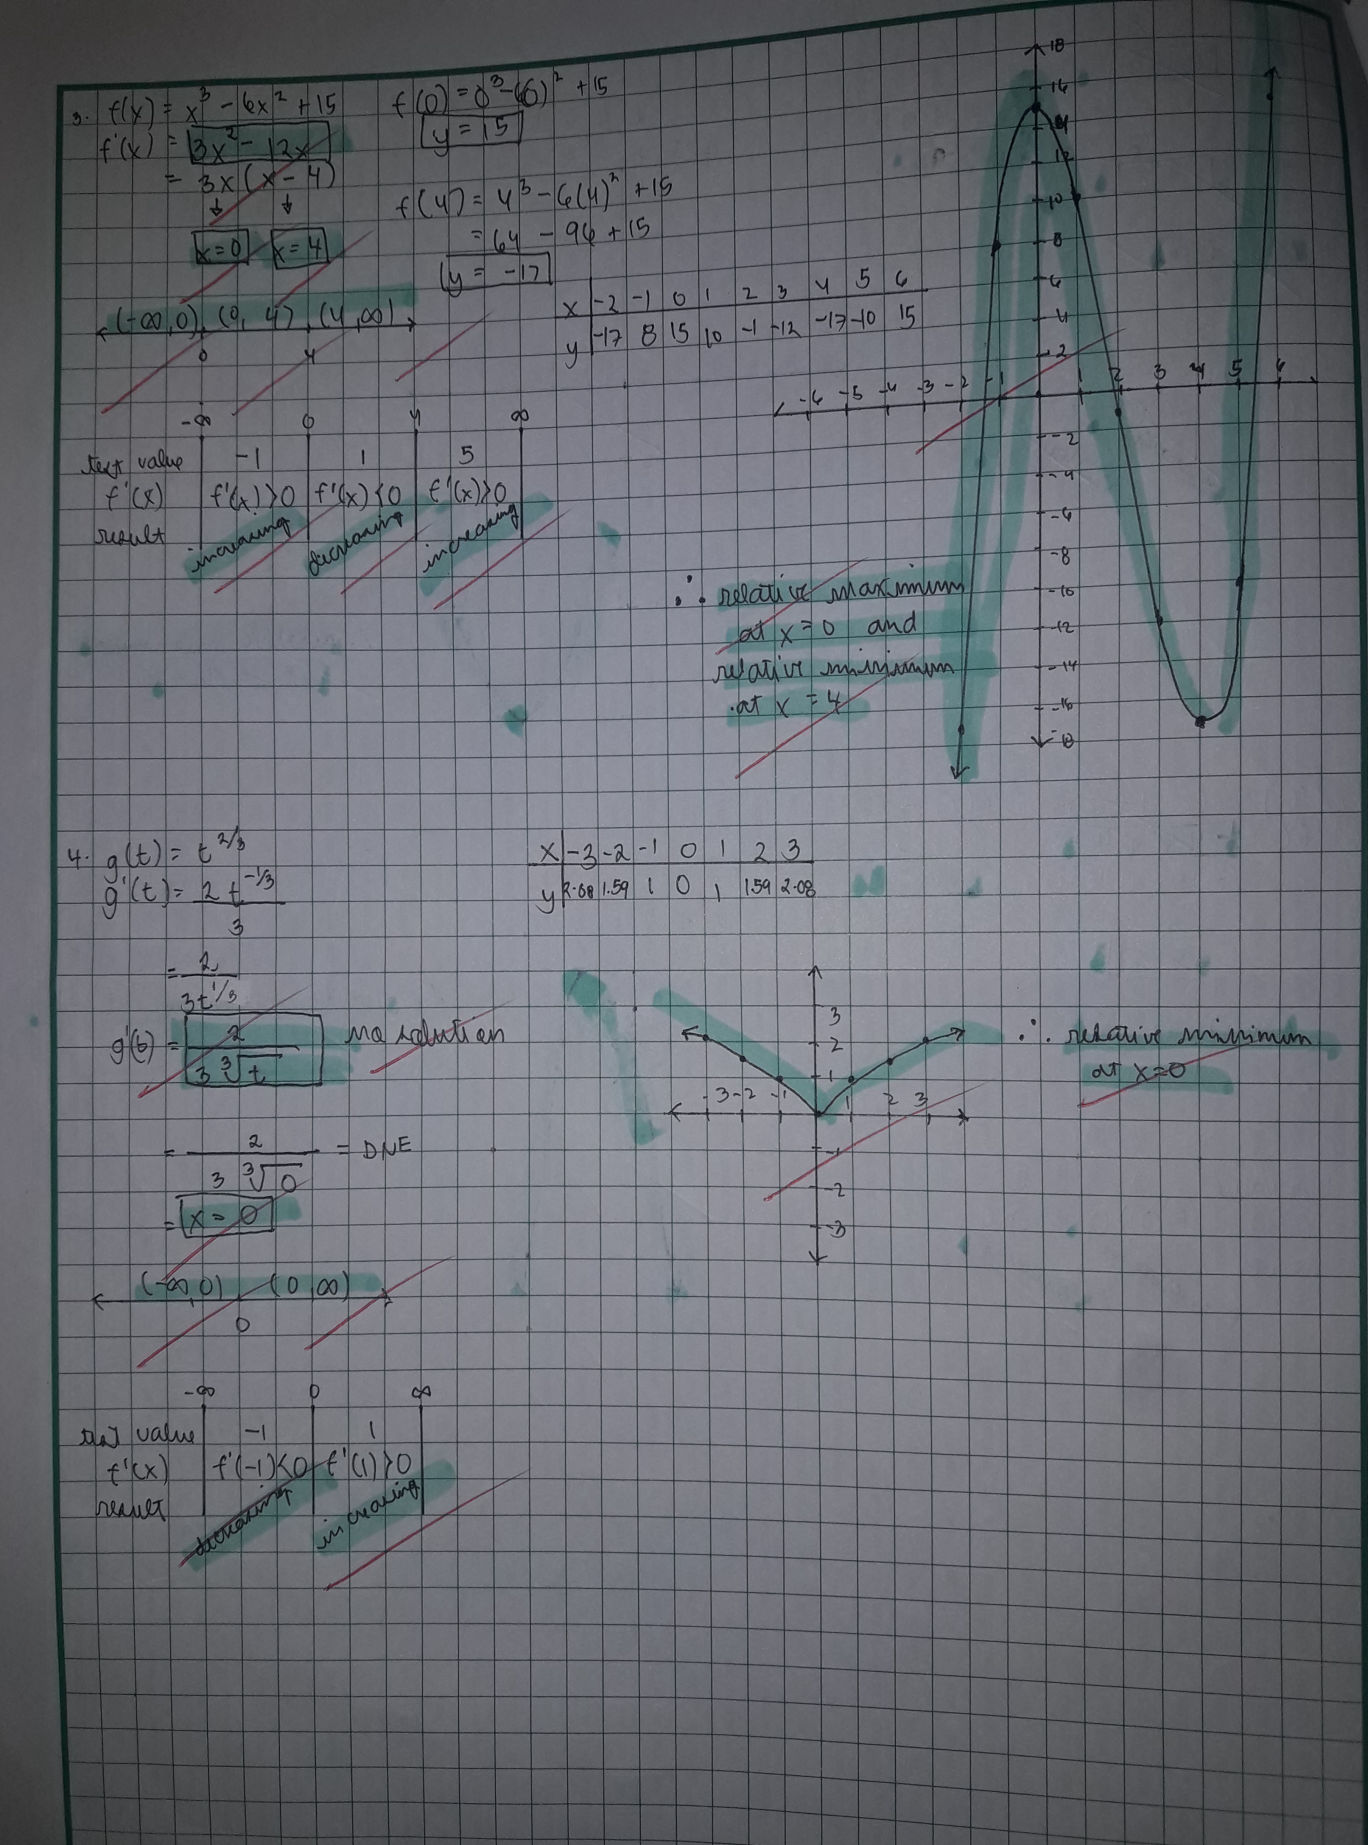 3. f(x) = x³ - 6x² + 15
f'(x) = 3x² - 12x
= 3x(x - 4)
↓ ↓
x=0 x=4
f(0) = 0³ - (6)² + 15
y = 15
f(4) = 4³ - 6(4)² + 15
= 64 - 96 + 15
y = -17
(-∞,0) (0, 4) (4,∞)
0 4
x -2 -1 0 1 2 3 4 5 6
y -17 8 15 10 -1 -12 -17 -10 15
-∞ 0 4 ∞
test value -1 1 5
f'(x) f'(x)>0 f'(x)<0 f'(x)>0
result increasing decreasing increasing
18
16
14
12
10
8
6
4
2
-6 -5 -4 -3 -2 -1 1 2 3 4 5 6
-2
-4
-6
-8
-10
-12
-14
-16
-18
∴ relative maximum
at x=0 and
relative minimum
at x = 4
4. g(t) = t^2/3
g'(t) = 2 t^-1/3
3
= 2
3t^1/3
g'(t) = 2 no solution
3 ∛t
= 2 = DNE
3 ∛0
= x = 0
(-∞,0) (0, ∞)
0
x -3 -2 -1 0 1 2 3
y 2.08 1.59 1 0 1 1.59 2.08
3
2
1
-3 -2 -1 1 2 3
-1
-2
-3
∴ relative minimum
at x=0
-∞ 0 ∞
test value -1 1
f'(x) f'(-1)<0 f'(1)>0
result decreasing increasing